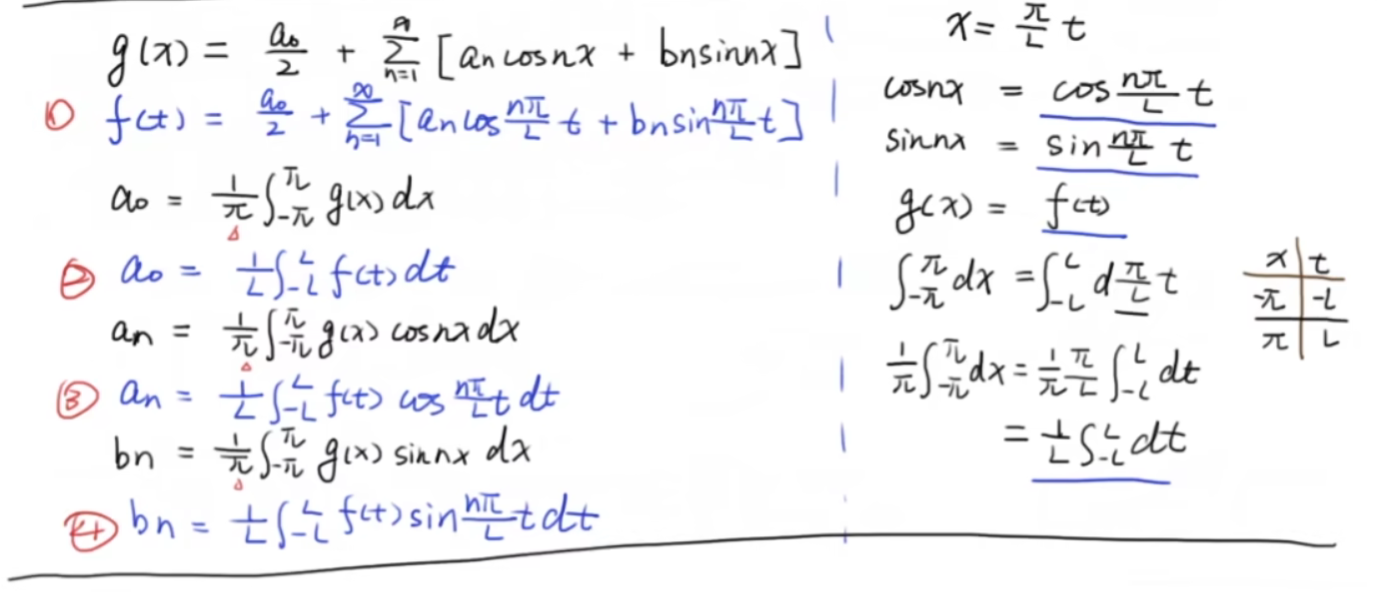 g(x) = a₀/2 + Σ_{n=1}^{∞} [aₙ cos nx + bₙ sin nx]
① f(t) = a₀/2 + Σ_{n=1}^{∞} [aₙ cos nπ/L t + bₙ sin nπ/L t]
a₀ = 1/π ∫_{-π}^{π} g(x) dx
② a₀ = 1/L ∫_{-L}^{L} f(t) dt
aₙ = 1/π ∫_{-π}^{π} g(x) cos nx dx
③ aₙ = 1/L ∫_{-L}^{L} f(t) cos nπ/L t dt
bₙ = 1/π ∫_{-π}^{π} g(x) sin nx dx
④ bₙ = 1/L ∫_{-L}^{L} f(t) sin nπ/L t dt
x = π/L t
cos nx = cos nπ/L t
sin nx = sin nπ/L t
g(x) = f(t)
∫_{-π}^{π} dx = ∫_{-L}^{L} d π/L t
1/π ∫_{-π}^{π} dx = 1/π π/L ∫_{-L}^{L} dt
= 1/L ∫_{-L}^{L} dt
x t
-π -L
π L